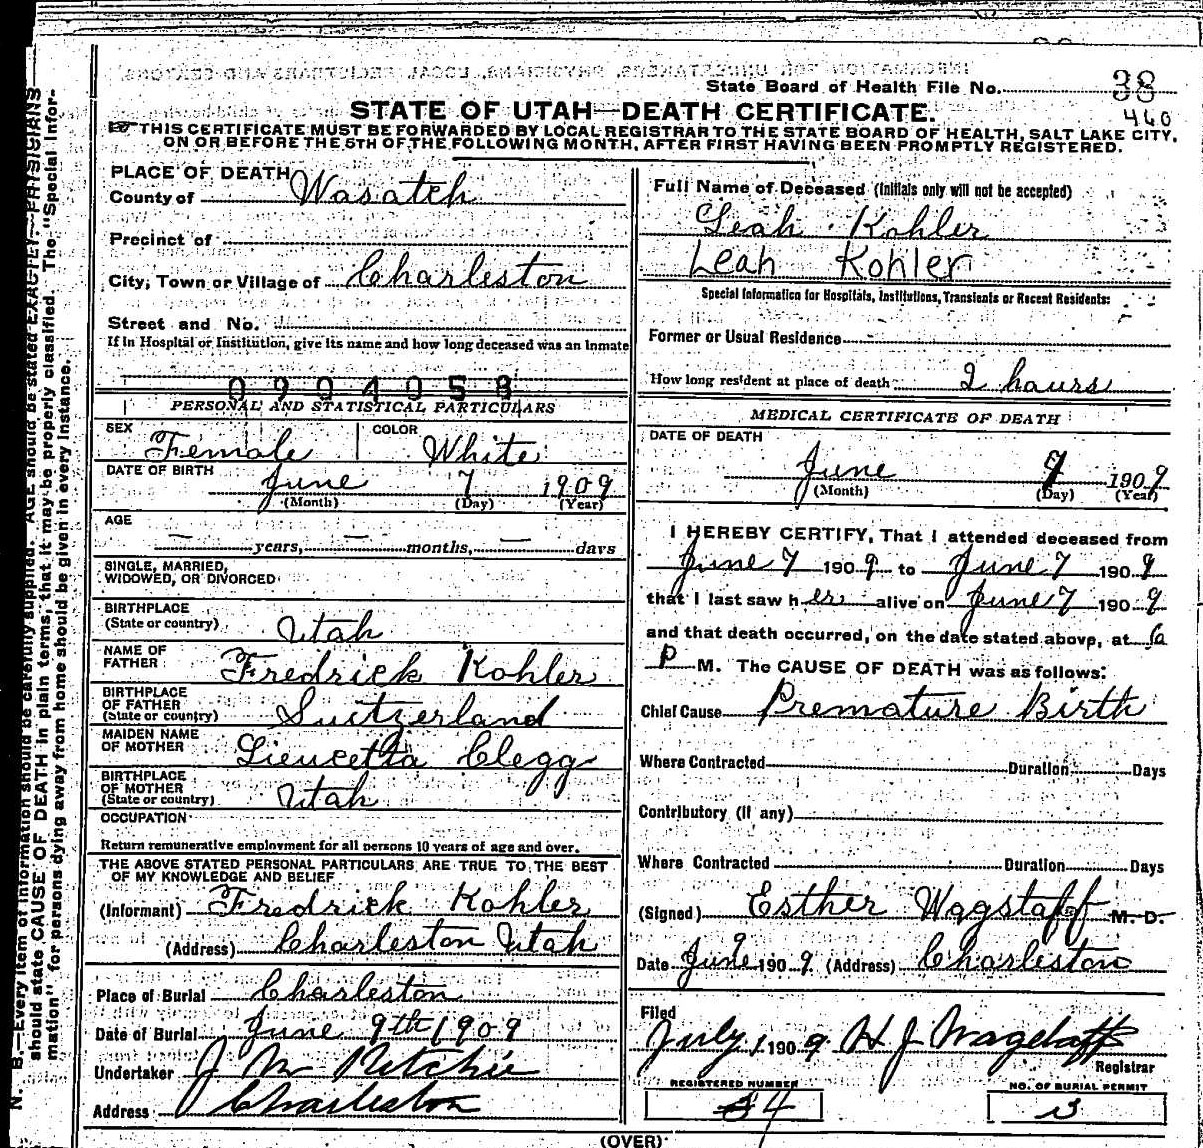 State Board of Health File No. 38
460
STATE OF UTAH—DEATH CERTIFICATE.
THIS CERTIFICATE MUST BE FORWARDED BY LOCAL REGISTRAR TO THE STATE BOARD OF HEALTH, SALT LAKE CITY,
ON OR BEFORE THE 5TH OF THE FOLLOWING MONTH, AFTER FIRST HAVING BEEN PROMPTLY REGISTERED.
PLACE OF DEATH
County of Wasatch
Precinct of
City, Town or Village of Charleston
Street and No.
If in Hospital or Institution, give its name and how long deceased was an Inmate
0904058
PERSONAL AND STATISTICAL PARTICULARS
SEX Female COLOR White
DATE OF BIRTH June 7 1909
(Month) (Day) (Year)
AGE
— years, — months, — days
SINGLE, MARRIED,
WIDOWED, OR DIVORCED
BIRTHPLACE
(State or country) Utah
NAME OF
FATHER Fredrick Kohler
BIRTHPLACE
OF FATHER
(State or country) Suitzerland
MAIDEN NAME
OF MOTHER Clegg
BIRTHPLACE
OF MOTHER
(State or country) Utah
OCCUPATION
Return remunerative employment for all persons 10 years of age and over.
THE ABOVE STATED PERSONAL PARTICULARS ARE TRUE TO THE BEST
OF MY KNOWLEDGE AND BELIEF
(Informant) Fredrick Kohler
(Address) Charleston Utah
Place of Burial Charleston
Date of Burial June 9th 1909
Undertaker J M Ritchie
Address Charleston
Full Name of Deceased (Initials only will not be accepted)
Leah Kohler
Leah Kohler
Special Information for Hospitals, Institutions, Transients or Recent Residents:
Former or Usual Residence
How long resident at place of death 2 hours
MEDICAL CERTIFICATE OF DEATH
DATE OF DEATH
June 7 1909
(Month) (Day) (Year)
I HEREBY CERTIFY, That I attended deceased from
June 7 1909 to June 7 1909
that I last saw her alive on June 7 1909
and that death occurred, on the date stated above, at 6
P M. The CAUSE OF DEATH was as follows:
Chief Cause Premature Birth
Where Contracted Duration Days
Contributory (if any)
Where Contracted Duration Days
(Signed) Esther Wagstaff M. D.
Date June 9 1909 (Address) Charleston
Filed
July 1 1909 H J Wagstaff
Registrar
REGISTERED NUMBER
4
NO. OF BURIAL PERMIT
(OVER)
N. B.—Every item of information should be carefully supplied. AGE should be stated EXACTLY. PHYSICIANS
should state CAUSE OF DEATH in plain terms, that it may be properly classified. The "Special Infor-
mation" for persons dying away from home should be given in every instance.